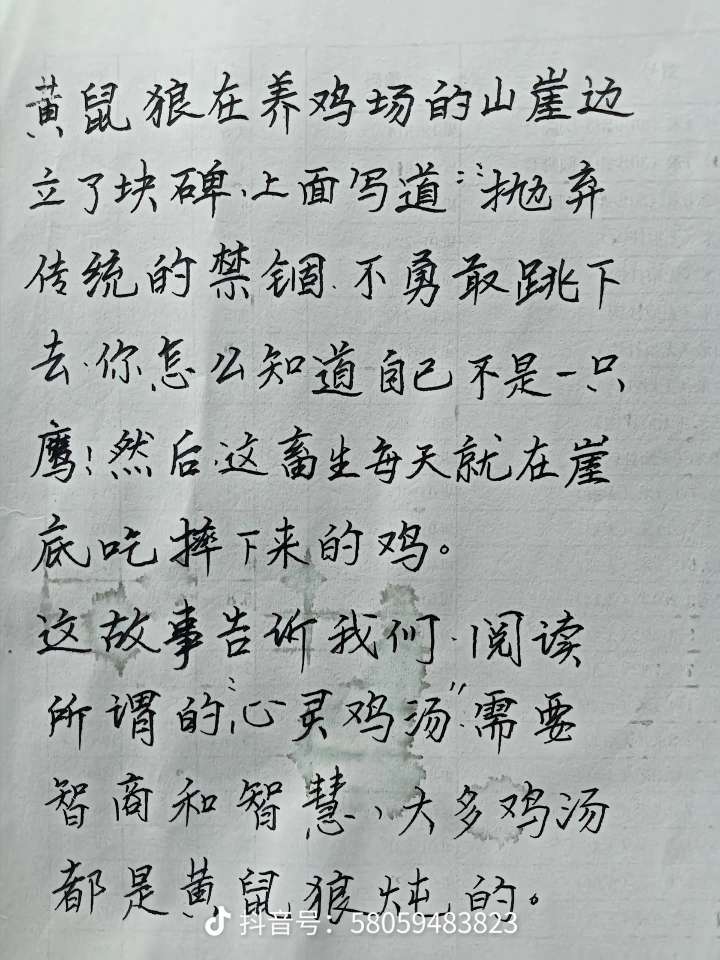 黄鼠狼在养鸡场的山崖边
立了块碑,上面写道:“抛弃
传统的禁锢.不勇敢跳下
去.你怎么知道自己不是一只
鹰!然后,这畜生每天就在崖
底吃摔下来的鸡。
这故事告诉我们.阅读
所谓的“心灵鸡汤”需要
智商和智慧、大多鸡汤
都是黄鼠狼炖的。
抖音号:58059483823